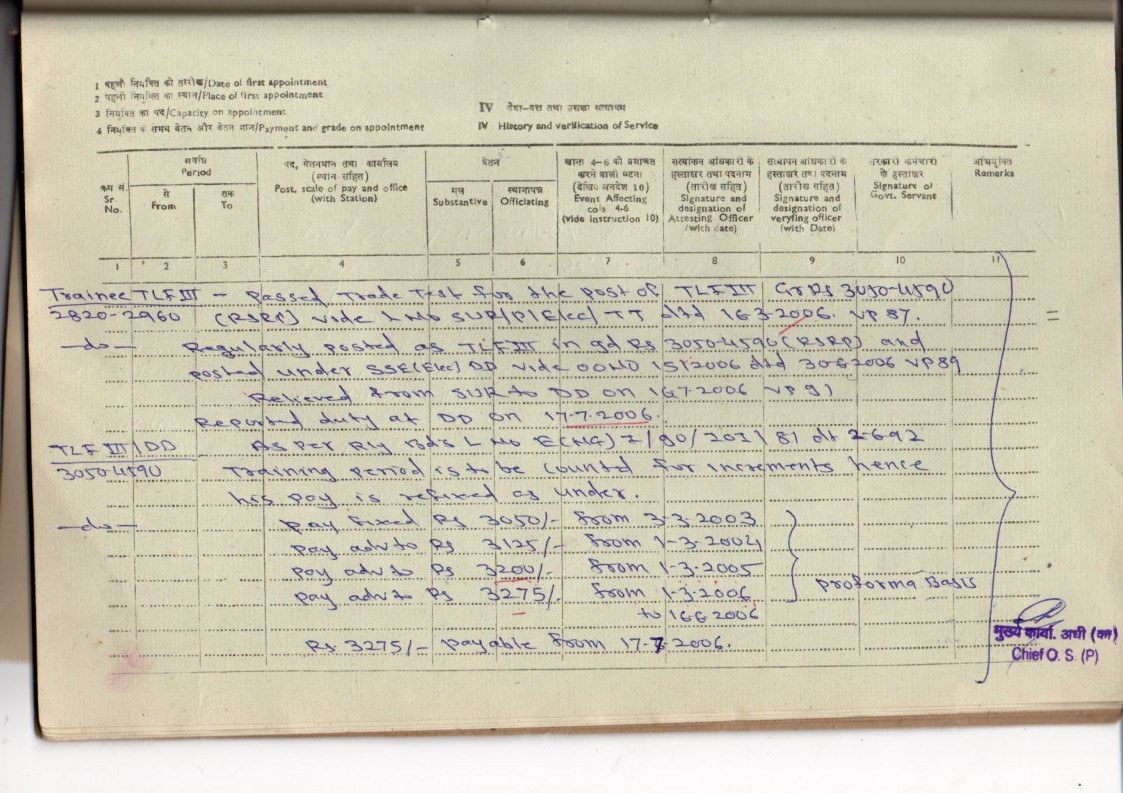 1 पहली नियुक्ति की तारीख/Date of first appointment
2 पहली नियुक्ति का स्थान/Place of first appointment
3 नियुक्ति का पद/Capacity on appointment
4 नियुक्ति के समय वेतन और वेतन मान/Payment and grade on appointment
IV सेवा-वृत्त तथा उसका सत्यापन
IV History and verification of Service
क्रम सं. Sr. No.
अवधि Period
से From
तक To
पद, वेतनमान तथा कार्यालय (स्थान सहित) Post, scale of pay and office (with Station)
वेतन
मूल Substantive
स्थानापन्न Officiating
खाना 4-6 को प्रभावित करने वाली घटना (देखिए अनुदेश 10) Event Affecting cols 4-6 (vide Instruction 10)
सत्यापन अधिकारी के हस्ताक्षर तथा पदनाम (तारीख सहित) Signature and designation of Attesting Officer (with date)
सत्यापन अधिकारी के हस्ताक्षर तथा पदनाम (तारीख सहित) Signature and designation of veryfing officer (with Date)
सरकारी कर्मचारी के हस्ताक्षर Signature of Govt. Servant
अभियुक्ति Remarks
1 2 3 4 5 6 7 8 9 10 11
Trainee TLF III - Passed Trade Test for the post of TLF III Gr Rs 3050-4590
2820-2960 (RSRP) vide L No SUR/P/Elec/TT dtd 16-3-2006. VP 87.
-do- Regularly posted as TLF III in gd Rs 3050-4590 (RSRP) and
posted under SSE(Elec) DD vide OONO 151/2006 dtd 30-6-2006 VP 89
Relieved from SUR to DD on 16-7-2006 VP 91
Reported duty at DD on 17-7-2006.
TLF III/DD As per Rly Bd's L No E(NG) I/90/ dt 2-6-92
3050-4590 Training period is to be countd for increments hence
his pay is refixed as under.
-do- Pay fixed Rs 3050/- from 3-3-2003
Pay adv to Rs 3125/- from 1-3-2004
Pay adv to Rs 3200/- from 1-3-2005
Pay adv to Rs 3275/- from 1-3-2006
Proforma Basis
to 2006
Rs 3275/- payable from 17-7-2006.
मुख्य कार्या. अधी (का)
Chief O. S. (P)